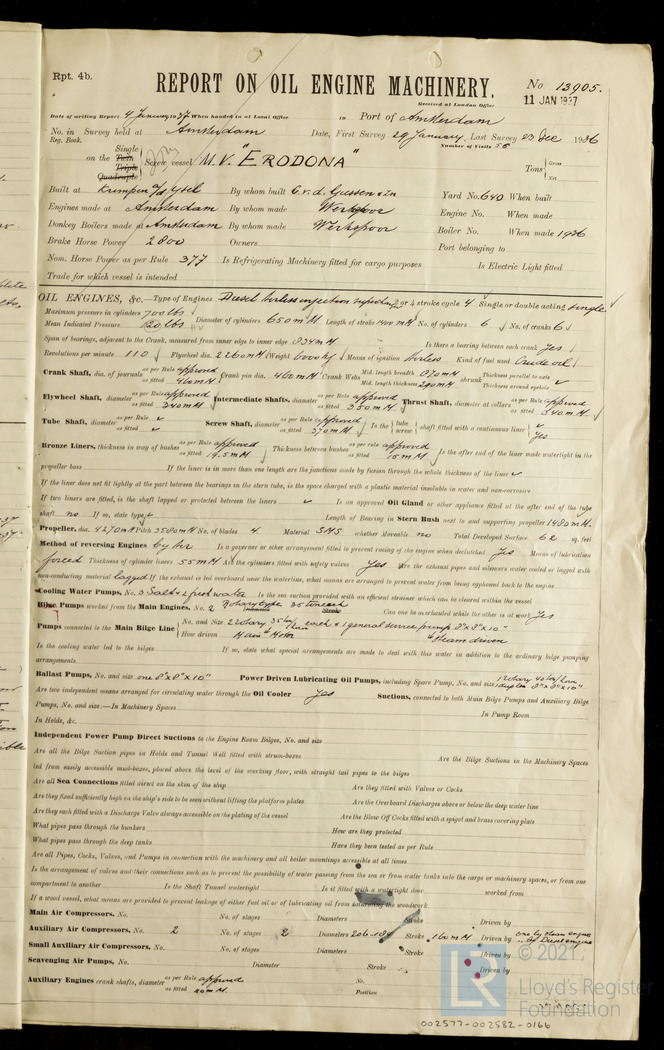 Rpt. 4b.
REPORT ON OIL ENGINE MACHINERY.
No 13905.
Received at London Office
11 JAN 1937
Date of writing Report 4 January 1937 When handed in at Local Office
Port of Amsterdam
No. in Survey held at Amsterdam
Date, First Survey 29 January, Last Survey 23 Dec 1936
Reg. Book.
Number of Visits 56
Single
on the Twin Triple Quadruple Screw vessel M.V. "ERODONA"
Tons Gross Net
Built at Krimpen a/d Ysel By whom built C. v. d. Giessen & Zn Yard No. 640 When built
Engines made at Amsterdam By whom made Werkspoor Engine No. When made
Donkey Boilers made at Amsterdam By whom made Werkspoor Boiler No. When made 1936
Brake Horse Power 2800 Owners Port belonging to
Nom. Horse Power as per Rule 377 Is Refrigerating Machinery fitted for cargo purposes Is Electric Light fitted
Trade for which vessel is intended
OIL ENGINES, &c.—Type of Engines Diesel airless injection 2 or 4 stroke cycle 4 Single or double acting single
Maximum pressure in cylinders 700 lbs Diameter of cylinders 650 mM Length of stroke 1400 mM No. of cylinders 6 No. of cranks 6
Mean Indicated Pressure 120 lbs
Span of bearings, adjacent to the Crank, measured from inner edge to inner edge 834 mM Is there a bearing between each crank Yes
Revolutions per minute 110 Flywheel dia. 2260 mM Weight 6000 kg Means of ignition airless Kind of fuel used Crude oil
Crank Shaft, dia. of journals as per Rule approved as fitted 460 mM Crank pin dia. 460 mM Crank Webs Mid. length breadth 870 mM Mid. length thickness 290 mM shrunk Thickness parallel to axis Thickness around eyehole
Flywheel Shaft, diameter as per Rule approved as fitted 340 mM Intermediate Shafts, diameter as per Rule approved as fitted 350 mM Thrust Shaft, diameter at collars as per Rule approved as fitted 340 mM
Tube Shaft, diameter as per Rule as fitted Screw Shaft, diameter as per Rule approved as fitted 370 mM Is the tube screw shaft fitted with a continuous liner Yes
Bronze Liners, thickness in way of bushes as per Rule approved as fitted 19.5 mM Thickness between bushes as per rule approved as fitted 15 mM Is the after end of the liner made watertight in the
propeller boss If the liner is in more than one length are the junctions made by fusion through the whole thickness of the liner
If the liner does not fit tightly at the part between the bearings in the stern tube, is the space charged with a plastic material insoluble in water and non-corrosive
If two liners are fitted, is the shaft lapped or protected between the liners Is an approved Oil Gland or other appliance fitted at the after end of the tube
shaft no If so, state type Length of Bearing in Stern Bush next to and supporting propeller 1480 mM.
Propeller, dia. 4270 mM Pitch 3580 mM No. of blades 4. Material SMS whether Moveable no Total Developed Surface 62 sq. feet
Method of reversing Engines by air Is a governor or other arrangement fitted to prevent racing of the engine when declutched Yes Means of lubrication
forced Thickness of cylinder liners 55 mM Are the cylinders fitted with safety valves Yes Are the exhaust pipes and silencers water cooled or lagged with
non-conducting material lagged If the exhaust is led overboard near the waterline, what means are arranged to prevent water from being syphoned back to the engine
Cooling Water Pumps, No. 3 Salt & 2 fresh water Is the sea suction provided with an efficient strainer which can be cleared within the vessel
Bilge Pumps worked from the Main Engines, No. 2 Rotary type Diameter 35 ton each Stroke Can one be overhauled while the other is at work Yes
Pumps connected to the Main Bilge Line No. and Size 2 rotary 35 ton/hour each & 1 general service pump 8"x8"x10"
How driven Main motor Steam driven
Is the cooling water led to the bilges If so, state what special arrangements are made to deal with this water in addition to the ordinary bilge pumping
arrangements
Ballast Pumps, No. and size one 8"x8"x10" Power Driven Lubricating Oil Pumps, including Spare Pump, No. and size 1 rotary 40 ton/hour 1 duplex 8"x8"x10"
Are two independent means arranged for circulating water through the Oil Cooler Yes Suctions, connected to both Main Bilge Pumps and Auxiliary Bilge
Pumps, No. and size:—In Machinery Spaces In Pump Room
In Holds, &c.
Independent Power Pump Direct Suctions to the Engine Room Bilges, No. and size
Are all the Bilge Suction pipes in Holds and Tunnel Well fitted with strum-boxes Are the Bilge Suctions in the Machinery Spaces
led from easily accessible mud-boxes, placed above the level of the working floor, with straight tail pipes to the bilges
Are all Sea Connections fitted direct on the skin of the ship Are they fitted with Valves or Cocks
Are they fixed sufficiently high on the ship's side to be seen without lifting the platform plates Are the Overboard Discharges above or below the deep water line
Are they each fitted with a Discharge Valve always accessible on the plating of the vessel Are the Blow Off Cocks fitted with a spigot and brass covering plate
What pipes pass through the bunkers How are they protected
What pipes pass through the deep tanks Have they been tested as per Rule
Are all Pipes, Cocks, Valves, and Pumps in connection with the machinery and all boiler mountings accessible at all times
Is the arrangement of valves and their connections such as to prevent the possibility of water passing from the sea or from water tanks into the cargo or machinery spaces, or from one
compartment to another Is the Shaft Tunnel watertight Is it fitted with a watertight door worked from
If a wood vessel, what means are provided to prevent leakage of either fuel oil or of lubricating oil from saturating the woodwork
Main Air Compressors, No. No. of stages Diameters Stroke Driven by
Auxiliary Air Compressors, No. 2 No. of stages 2 Diameters 206-184 Stroke 160 mM Driven by one by steam engine .. by Diesel engine
Small Auxiliary Air Compressors, No. No. of stages Diameters Stroke Driven by
Scavenging Air Pumps, No. Diameter Stroke Driven by
Auxiliary Engines crank shafts, diameter as per Rule approved as fitted No. Position
© 2021.
LR
Lloyd's Register
Foundation
002577-002582-0166